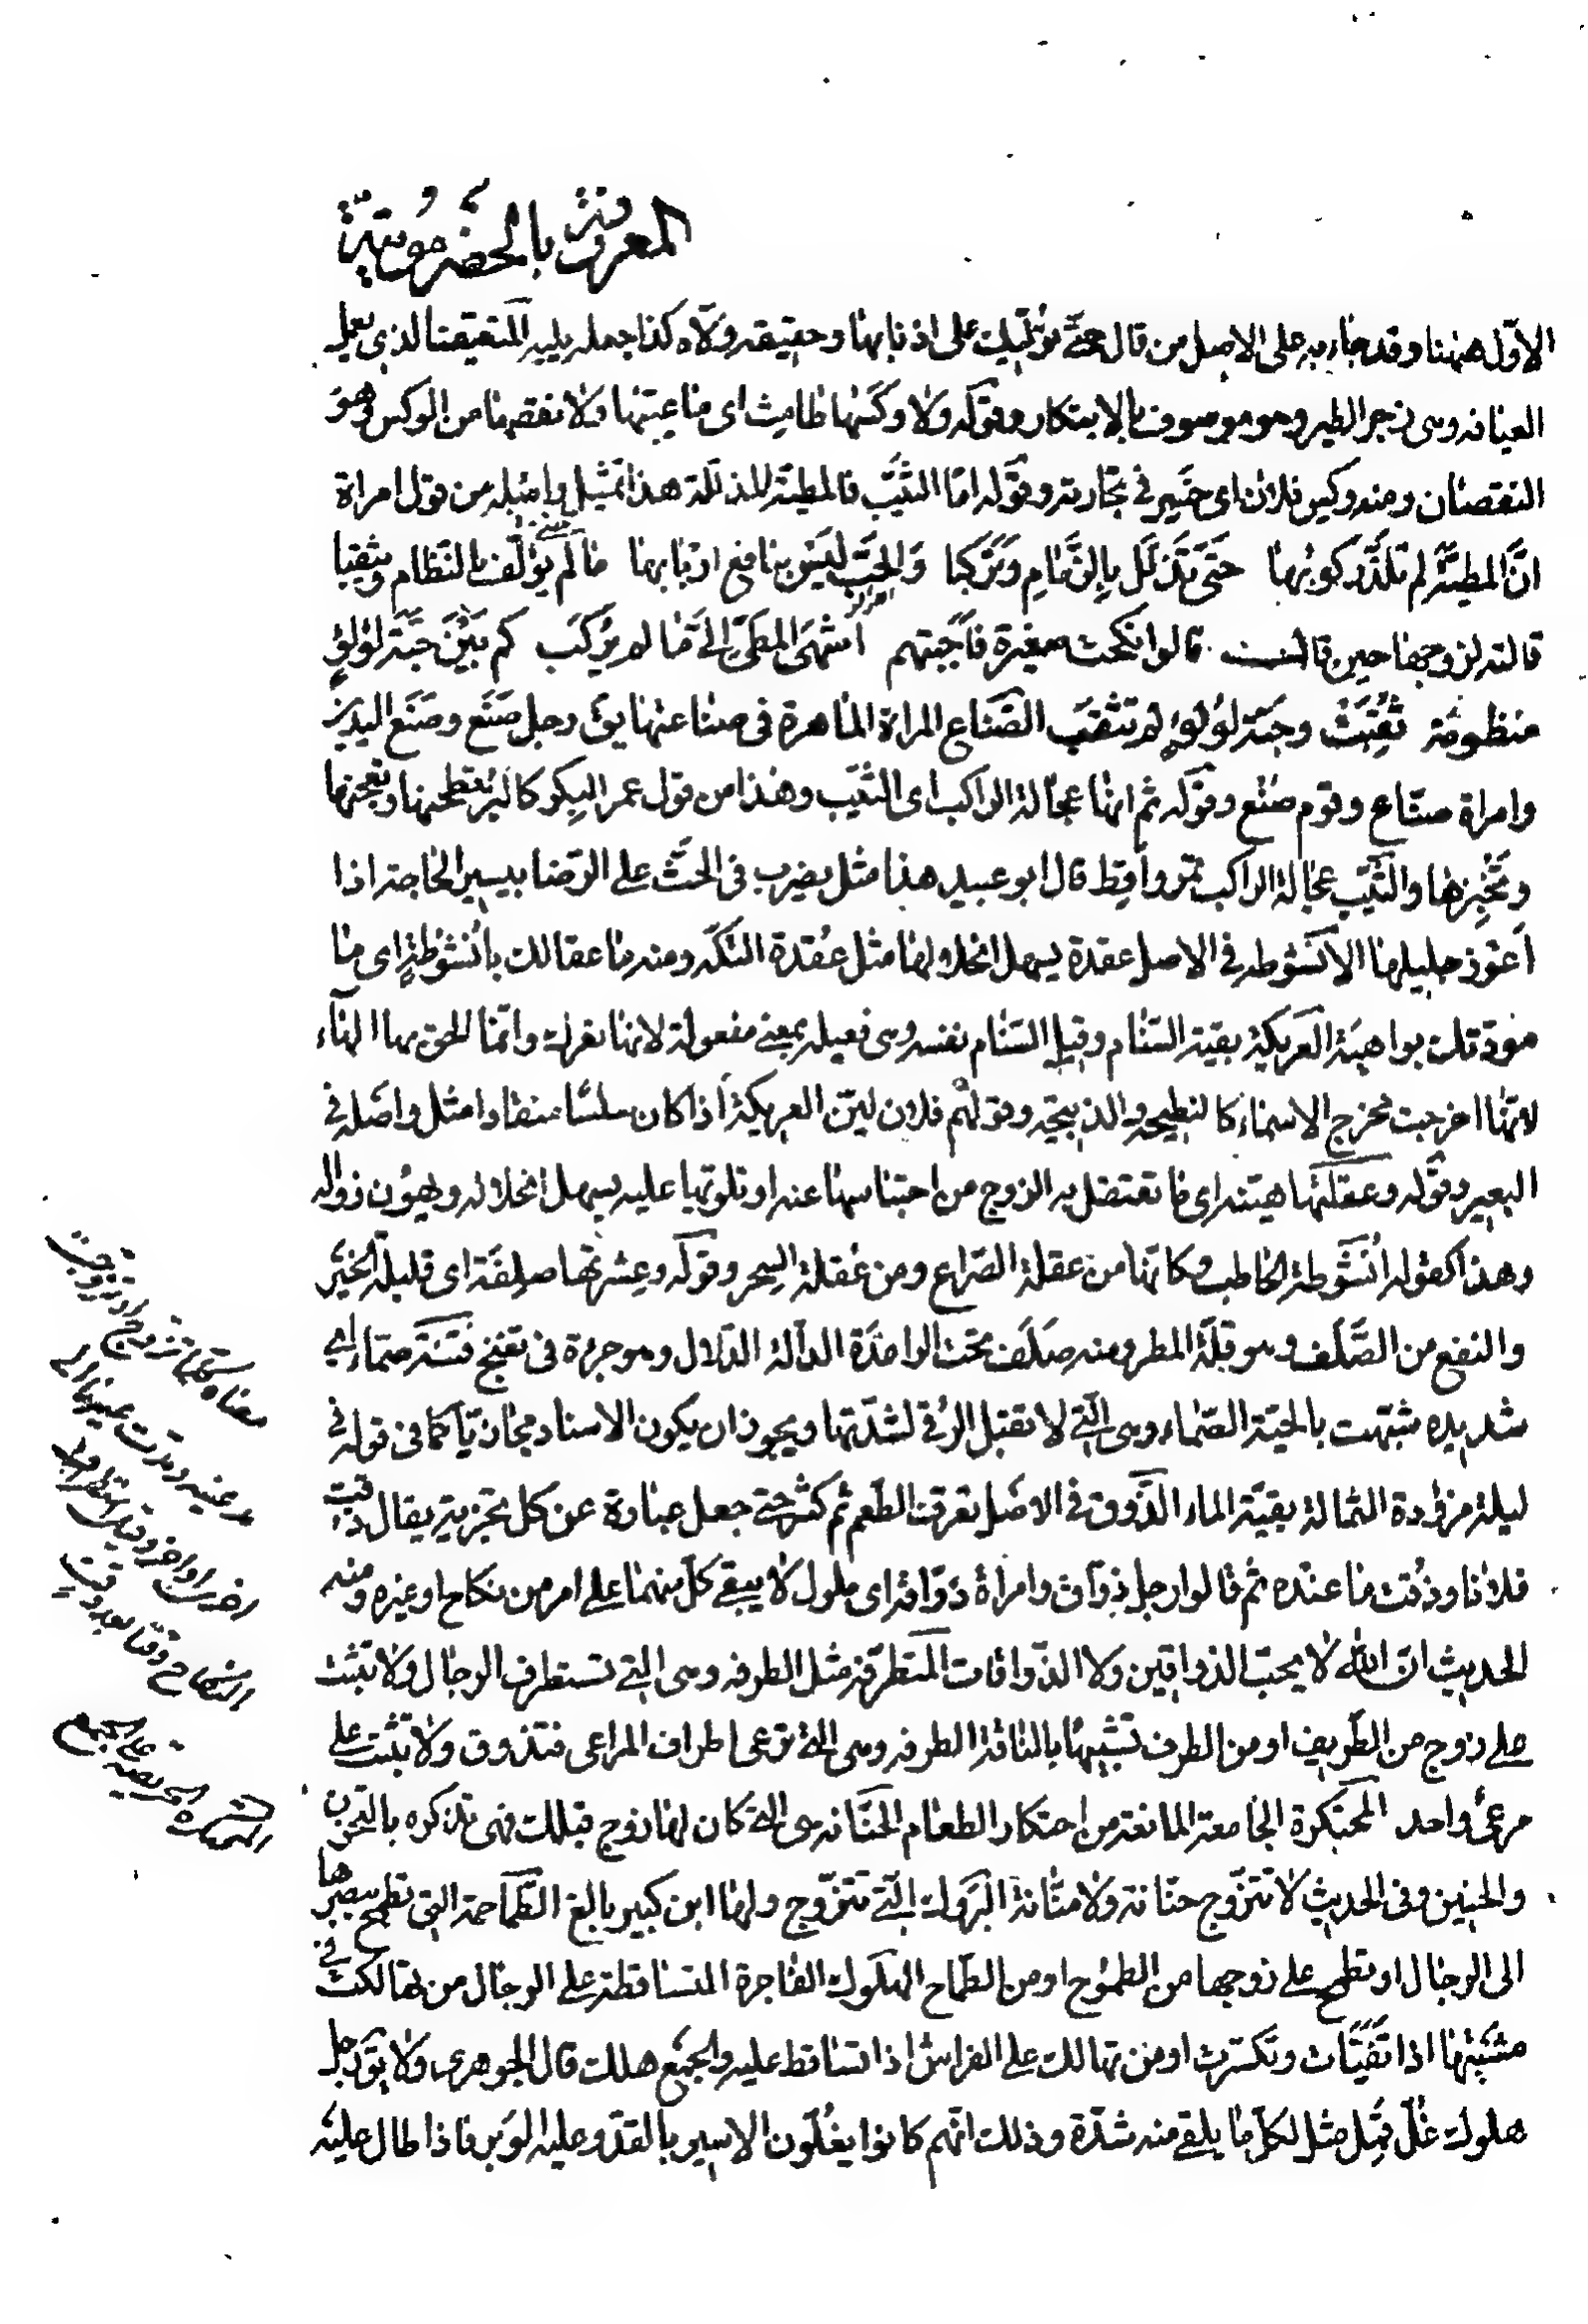 المعروفة بالحضرموتية
الاوّل ههنا وقد جاء به على الاصل من قال حتّى تولّيت على اذنابها وحقيقته ولّاه كذا جعله يليه المتعيّف الذى يعمل
العيافة وهى زجر الطير وهو موصوف بالابتكار وقوله ولا وكسها طامث اى ما عيبتها ولا نقصها من الوكس وهو
النقصان ومنه وكس فلان اى خسر فى تجارته وقوله امّا الثيّب فالمطيّة المذلّلة هذا تمثيل واصله من قول امراة
انّ المطيّة لم تلذّ ركوبها حتّى تذلّل بالزّمام وتركبا والحبّ ليس بنافع اربابها ما لم يؤلّف بالنّظام ويثقبا
قالته لزوجها حين قال قالوا نكحت صغيرة فاجبتهم اشهى المطىّ الىّ ما لم يركب كم بين حبّة لؤلؤ
منظومة ثقبت وحبّة لؤلؤ لم تثقب الصّناع المراة الماهرة فى صناعتها يق رجل صنع وصنع اليدين
وامراة صناع وقوم صنع وقوله ثم انها عجالة الراكب اى الثيّب وهذا من قول عمر البكر كالبرّ تطحنها وتعجنها
وتخبزها والثيّب عجالة الراكب تمر واقط قال ابو عبيد هذا مثل يضرب فى الحثّ على الرّضا بيسير الحاجة اذا
اعوز جليلها الانشوطة فى الاصل عقدة يسهل انحلالها مثل عقدة التكّه ومنه ما عقالك بانشوطة اى ما
مودّتك بواهية العريكة بقيّة السّنام وقيل السّنام نفسه وهى فعيلة بمعنى مفعولة لانها تعرك وانّما الحق بها الهاء
لانّها اخرجت مخرج الاسماء كالنطيحة والذبيحة وقولهم فلان ليّن العريكة اذا كان سلسا منقادا مثل واصله فى
البعير وقوله وعقلتها هيّنة اى ما تعتضل به الزوج من احتباسها عنه او تلوّيها عليه يسهل انحلاله ويهون زواله
وهذا كقوله انشوطة الخاطب وكانّها من عقلة الصّراع ومن عقلة السحر وقوله وعشرتها صلفة اى قليلة الخير
والنفع من الصّلف وهو قلّة المطر ومنه صلف تحت الراعدة الدالّة الدّلال وهو جرءة فى تغنّج فتنة صمّاء اى
شديدة شبّهت بالحيّة الصّماء وهى الّتى لا تقبل الرّقى لشدّتها ويجوز ان يكون الاسناد مجازيّا كما فى قوله فى
ليلة مزؤدة الثمالة بقيّة الماء الذّوق فى الاصل تعرّف الطّعم ثم كثر حتى جعل عبارة عن كل تجربة يقال ذقت
فلانا وذقت ما عنده ثم قالوا رجل ذوّاق وامراة ذوّاقة اى ملول لا يبقى كلّ منهما على امر من نكاح او غيره ومنه
الحديث انّ الله لا يحبّ الذواقين ولا الذّواقات المتطرّفة مثل الطرفة وهى التى تستطرف الرجال ولا تثبت
على زوج من الطّريف او من الطرف تشبيها بالناقة الطرفة وهى التى ترعى اطراف المراعى فتذوق ولا تثبت على
مرعى واحد المحتكرة الجامعة المانعة من احتكار الطعام الحنّانة هى التى كان لها زوج قبلك فهى تذكره بالتحزّن
والحنين وفى الحديث لا تتزوّج حنّانة ولا منّانة البروك الّتى تتزوّج ولها ابن كبير بالغ الطّماحة التى تطمح ببصرها
الى الرجال او تطمح على زوجها من الطموح او من الطّماح الهلوك الفاجرة المتساقطة على الرجال من تهالكت فى
مشيتها اذا تفيّأت وتكسّرت او من تهالك على الفراش اذا تساقط عليه والجمع هلك قال الجوهرى ولا يق رجل
هلوك غلّ قمل مثل لكلّ ما يلقى منه شدّة وذلك انّهم كانوا يغلّون الاسير بالقدّ وعليه الوبر فاذا طال عليه